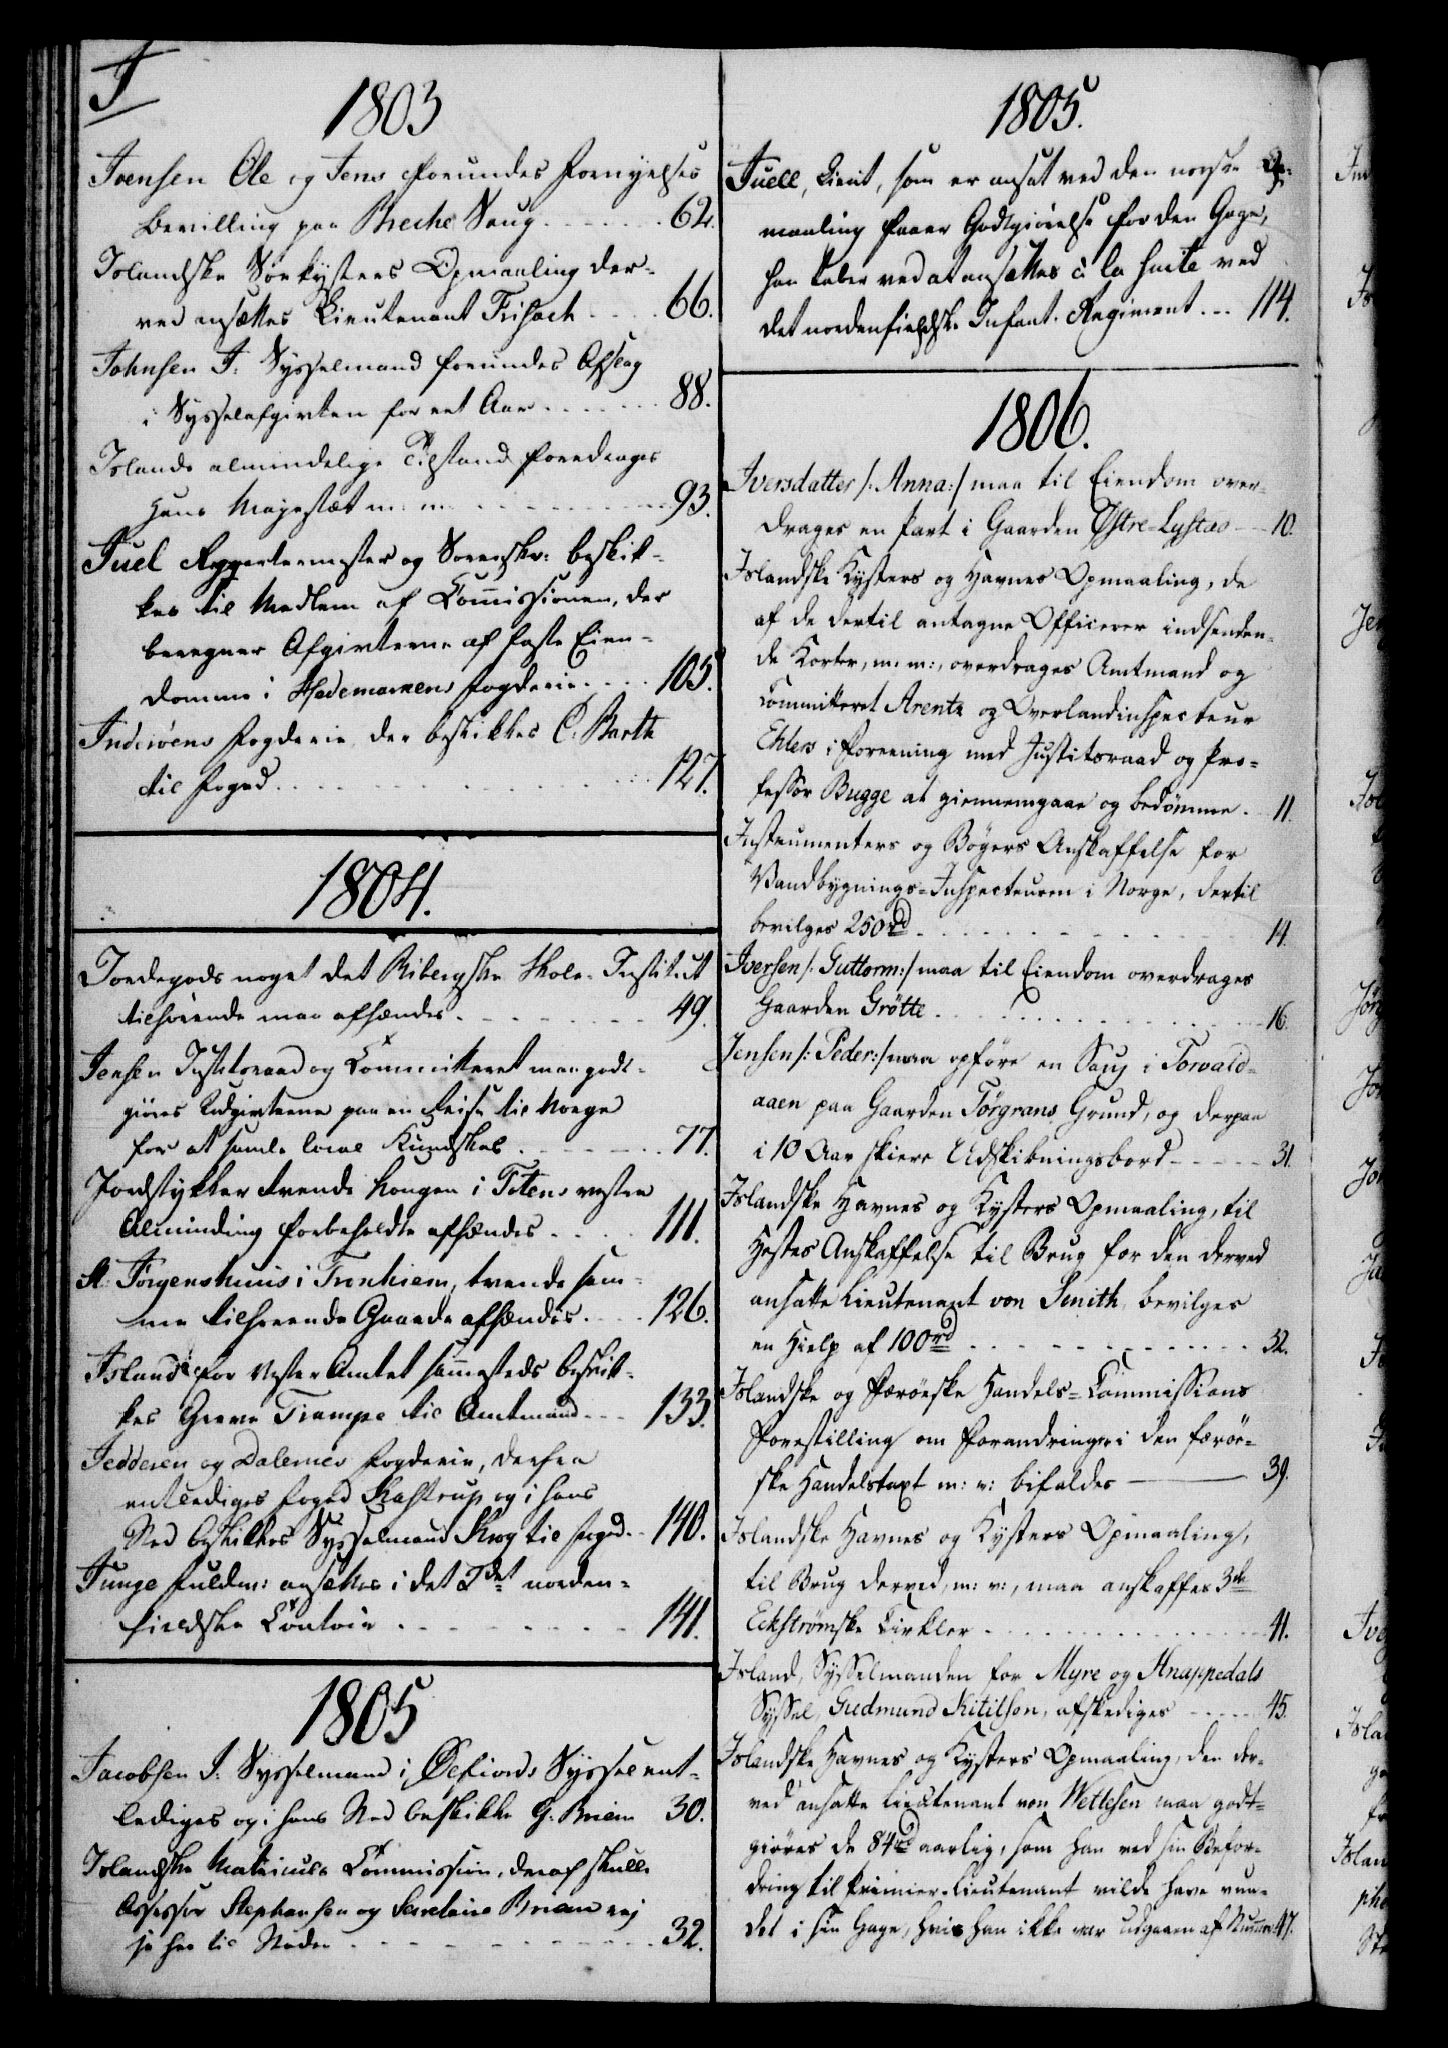 J
1803
Joensen Ole og Jens forundes Fornyelses
Bevilling paa Breche Saug . . . . . . 62.
Islandske Søekysters Opmaaling der-
ved ansættes Lieutenant Frisach . . . . 66.
Johnsen J: Sysselmand forundes Afslag
i Sysselafgivten for eet Aar . . . . . . 88.
Islands almindelige Tilstand foredrages
Hans Majestæt m: m: . . . . . . . . 93.
Juel Regjerermester og Sorenskr: beskik-
kes til Medlem af Com̄issionen, der
beregner Afgivterne af faste Eien-
domme i Hedemarkens Fogderie . . . . 105.
Inderøens Fogderie, der beskikkes C. Barth
til Foged . . . . . . . . . . . 127.
1804.
Jordegods noget det Ribergske Skole-Institut
tilhørende maa afhændes . . . . . . . 49.
Jensen Justitsraad og Committeret maa godt-
giøres Udgivterne paa en Reise til Norge
for at samle local Kundskab . . . . . . 77.
Jordstykker trende Kongen i Totens vestre
Alminding forbeholdte afhændes . . . . 111.
St. Jørgenshuus i Tronhiem, trende sam-
me tilhørende Gaarde afhændes . . . . 126.
Island, for Vester Amtet sam̄esteds beskik-
kes Greve Trampe til Amtmand . . . 133.
Jedderen og Dalernes Fogderie, derfra
entlediges Foged Kastrup og i hans
Sted beskikkes Sysselmand Krog til Foged . . 140.
Junge Fuldm: ansættes i det 2det norden-
fieldske Contoir . . . . . . . . 141.
1805
Jacobsen J: Sysselmand i Øefiords Syssel ent-
lediges og i hans Sted beskikkes G. Briem 30.
Islandske Matriculs Commission, deraf skulle
Assessor Stephansen og Secretaire Briem nej
se her til Steder . . . . . . . . . . . 32.
1805.
Juell, Lieut, som er ansat ved den norske Op-
maaling faaer Godtgiørelse for den Gage,
han taber ved at ansættes à la suite ved
det nordenfieldske Infant. Regiment . . . 114.
1806.
Iversdatter /: Anna :/ maa til Eiendom over-
drages en Part i Gaarden Østre-Lystad . . 10.
Islandske Kysters og Havnes Opmaaling, de
af de dertil antagne Officerer indsenden-
de Korter, m: m:, overdrages Amtmand og
Committeret Arentz og Overlandinspecteur
Ehlers i Foreening med Justitsraad og Pro-
fessor Bugge at giennemgaae og bedømme . 11.
Instrumenters og Bøgers Anskaffelse for
Vandbygnings-Inspecteuren i Norge, dertil
bevilges 250 rd . . . . . . . . . 14.
Iversen /: Guttorm :/ maa til Eiendom overdrages
Gaarden Grøtte . . . . . . . . . . 16.
Jensen /: Peder :/ maa opføre en Saug i Torvald-
aaen paa Gaarden Tørgrans Grund, og derpaa
i 10 Aar skiere Udskibningsbord . . . . 31.
Islandske Havnes og Kysters Opmaaling, til
Hestes Anskaffelse til Brug for den derved
ansatte Lieutenant von Smith, bevilges
en Hielp af 100 rd . . . . . . . . . 32.
Islandske og Færøeske Handels-Commissions
Forestilling om Forandringer i den færøe-
ske Handelstaxt m: v: bifaldes — 39.
Islandske Havnes og Kysters Opmaaling,
til Brug derved, m: v:, maa anskaffes 3de
Eckstrømske Cirkler . . . . . . . . . 41.
Island, Sysselmanden for Myre og Hnappedals
Syssel, Gudmund Kitilson, afskediges . . . . 45.
Islandske Havnes og Kysters Opmaaling, den der-
ved ansatte Lieutenant von Wetlesen maa godt-
giøres de 84 rd aarlig, som han ved sin Befor-
dring til Premier-Lieutenant vilde have vun-
det i sin Gage, hvis han ikke var udgaaen af Num̄er. 47.